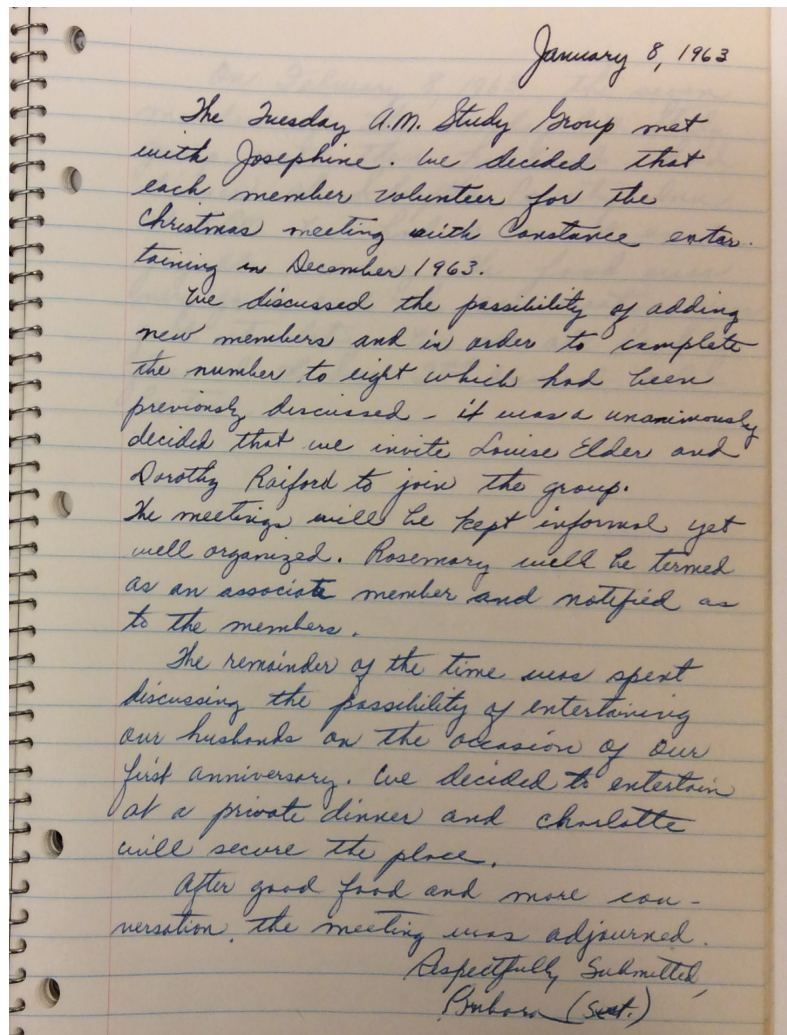 January 8, 1963
The Tuesday A.M. Study Group met
with Josephine. We decided that
each member volunteer for the
Christmas meeting with Constance enter-
taining in December 1963.
We discussed the possibility of adding
new members and in order to complete
the number to eight which had been
previously discussed - it was a unanimously
decided that we invite Louise Elder and
Dorothy Raiford to join the group.
The meetings will be kept informal yet
well organized. Rosemary will be termed
as an associate member and notified as
to the members.
The remainder of the time was spent
discussing the possibility of entertaining
our husbands on the occasion of our
first anniversary. We decided to entertain
at a private dinner and Charlotte
will secure the place.
After good food and more con-
versation, the meeting was adjourned.
Respectfully Submitted,
Barbara (Sect.)